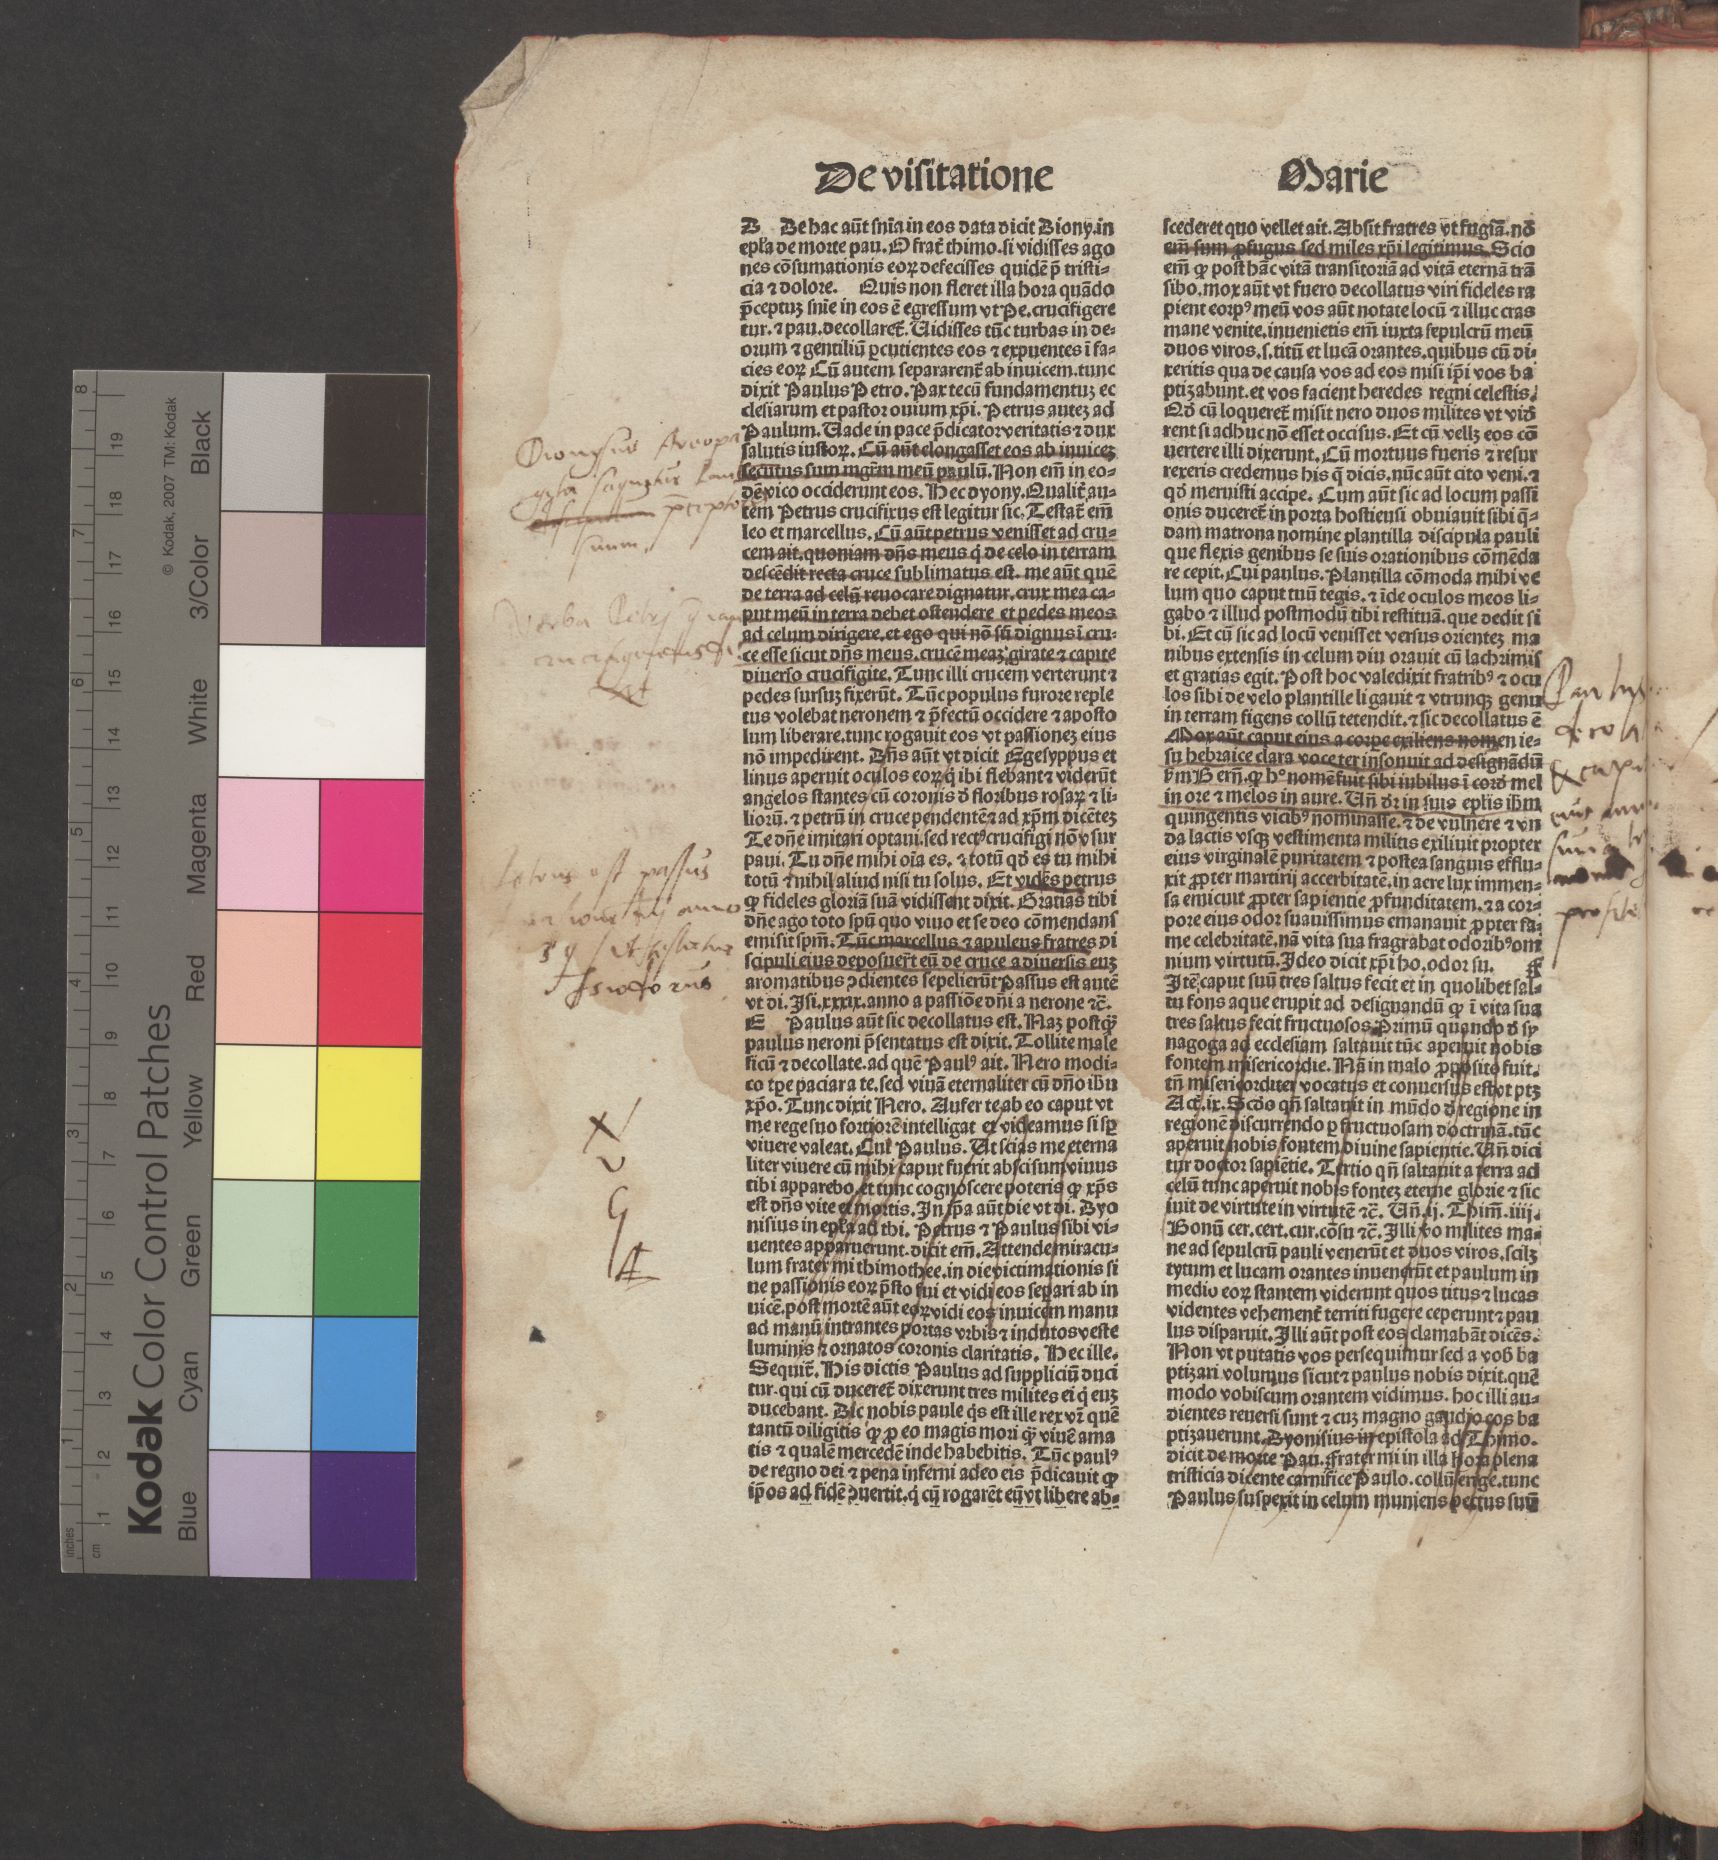 De visitatione
Marie
D De hac aūt sn̄ia in eos data dicit Diony. in
epl̄a de morte pau. O frat̄ thimo. si vidisses ago
nes cōsumationis eoꝝ defecisses quidē p̄ tristi-
cia ⁊ dolore. Quis non fleret illa hora quādo
p̄ceptuꝫ sn̄ie in eos ē egressum vt Pe. crucifigere
tur. ⁊ pau. decollaret̄. Uidisses tūc turbas in de-
orum ⁊ gentiliū ꝑcutientes eos ⁊ expuentes ī fa-
cies eoꝝ Cū autem separarent̄ ab inuicem. tunc
dixit Paulus Petro. Pax tecū fundamentuꝫ ec
clesiarum et pastor ouium xp̄i. Petrus auteꝫ ad
Paulum. Uade in pace p̄dicator veritatis ⁊ dux
salutis iustoꝝ. Cū aūt elongasset eos ab inuiceꝫ
secutus sum mgr̄m meū paulū. Non em̄ in eo-
dē vico occiderunt eos. Hec dyony. Qualit̄ au-
tem Petrus crucifixus est legitur sic. Testat̄ em̄
leo et marcellus. Cū aūt petrus venisset ad cru-
cem ait. quoniam dn̄s meus q̇ de celo in terram
descēdit recta cruce sublimatus est. me aūt quē
de terra ad celū reuocare dignatur. crux mea ca-
put meū in terra debet ostendere et pedes meos
ad celum dirigere. et ego qui nō sū dignus ī cru-
ce esse sicut dn̄s meus. crucē meaꝫ girate ⁊ capite
diuerso crucifigite. Tunc illi crucem verterunt ⁊
pedes sursuꝫ fixerūt. Tūc populus furore reple
tus volebat neronem ⁊ p̄fectū occidere ⁊ aposto
lum liberare. tunc rogauit eos vt passioneꝫ eius
nō impedirent. Dn̄s aūt vt dicit Egesyppus et
linus aperuit oculos eoꝝ q̇ ibi flebant ⁊ viderūt
angelos stantes cū coronis ď floribus rosaꝝ ⁊ li-
lioꝝ. ⁊ petrū in cruce pendentē ⁊ ad xp̄m dicēteꝫ
Te dn̄e imitari optaui. sed rectꝰ crucifigi nō vsur
paui. Tu dn̄e mihi oīa es. ⁊ totū qď es tu mihi
totū ⁊ nihil aliud nisi tu solus. Et vidēs petrus
ꝙ fideles gloriā suā vidissent dixit. Gratias tibi
dn̄e ago toto spū quo viuo et se deo cōmendans
emisit spm̄. Tūc marcellus ⁊ apuleus fratres di
scipuli eius deposuer̄t eū de cruce a diuersis euꝫ
aromatibus ↄdientes sepelierūt Passus est autē
vt di. Isi. xxxix. anno a passiōe dn̄i a nerone ⁊c̄.
E Paulus aūt sic decollatus est. Naꝫ postq̄ꝫ
paulus neroni p̄sentatus est dixit. Tollite male
ficū ⁊ decollate. ad quē Paulꝰ ait. Nero modi-
co tp̄e paciar a te. sed viuā eternaliter cū dn̄o ihu
xp̄o. Tunc dixit Nero. Aufer te ab eo caput vt
me rege suo fortiorē intelligat et videamus si sꝑ
viuere valeat. Cui Paulus. Ut scias me eterna
liter viuere cū mihi caput fuerit abscisum viuus
tibi apparebo. et tunc cognoscere poteris ꝙ xp̄s
est dn̄s vite et mortis. In ip̄a aūt die vt di. Dyo
nisius in epl̄a ad thi. Petrus ⁊ Paulus sibi vi-
uentes apparuerunt. dicit em̄. Attende miracu-
lum frater mi thimothee. in die victimationis si
ne passionis eoꝝ p̄sto fui et vidi eos separi ab in
uicē. post mortē aūt eoꝝ vidi eos inuicem manu
ad manū intrantes portas vrbis ⁊ indutos veste
luminis ⁊ ornatos coronis claritatis. Hec ille.
Sequit̄. His dictis Paulus ad suppliciū duci
tur. qui cū duceret̄ dixerunt tres milites ei q̇ euꝫ
ducebant. Dic nobis paule q̇s est ille rex vr̄ quē
tantū diligitis ꝙ ꝓ eo magis mori q̄ꝫ viuē ama
tis ⁊ qualē mercedē inde habebitis. Tūc paulꝰ
de regno dei ⁊ pena inferni adeo eis p̄dicauit ꝙ
ip̄os ad fidē ↄuertit. q̇ cū rogarēt eū vt libere ab-
scederet quo vellet ait. Absit fratres vt fugiā. nō
em̄ sum ꝓfugus sed miles xp̄i legitimus. Scio
em̄ ꝙ post hāc vitā transitoriā ad vitā eternā trā
sibo. mox aūt vt fuero decollatus viri fideles ra
pient corpꝰ meū vos aūt notate locū ⁊ illuc cras
mane venite. inuenietis em̄ iuxta sepulcrū meū
duos viros. s. titū et lucā orantes. quibus cū di-
xeritis qua de causa vos ad eos misi ip̄i vos ba
ptizabunt. et vos facient heredes regni celestis.
Qď cū loqueret̄ misit nero duos milites vt vid̄
rent si adhuc nō esset occisus. Et cū velleꝫ eos cō
uertere illi dixerunt. Cū mortuus fueris ⁊ resur
rexeris credemus his q̄ dicis. nūc aūt cito veni. ⁊
qď meruisti accipe. Cum aūt sic ad locum passi
onis duceret̄ in porta hostiensi obuiauit sibi q̄-
dam matrona nomine plantilla discipula pauli
que flexis genibus se suis orationibus cōmēda
re cepit. Cui paulus. Plantilla cōmoda mihi ve
lum quo caput tuū tegis. ⁊ īde oculos meos li-
gabo ⁊ illud postmodū tibi restituā. que dedit si
bi. Et cū sic ad locū venisset versus orienteꝫ ma
nibus extensis in celum diu orauit cū lachrimis
et gratias egit. Post hoc valedixit fratribꝰ ⁊ ocu
los sibi de velo plantille ligauit ⁊ vtrunqꝫ genu
in terram figens collū tetendit. ⁊ sic decollatus ē
Mox aūt caput eius a corpe exiliens nomen ie-
su hebraice clara voce ter insonuit ad designādū
in ore ⁊ melos in aure. Un̄ dr̄ in suis epl̄is ihm̄
quingentis vicibꝰ nominasse. ⁊ de vulnere ⁊ vn
da lactis vsqꝫ vestimenta militis exiliuit propter
eius virginalē puritatem ⁊ postea sanguis efflu-
xit ꝓpter martirij accerbitatē. in aere lux immen-
sa emicuit ꝓpter sapientie ꝓfunditatem. ⁊ a cor-
pore eius odor suauissimus emanauit ꝓpter fa-
me celebritatē. nā vita sua fragrabat odoribꝰ om
nium virtutū. Ideo dicit xp̄i bo. odor su. F
Itē caput suū tres saltus fecit et in quolibet sal-
tu fons aque erupit ad designandū ꝙ ī vita sua
tres saltus fecit fructuosos Primū quando ď sy
nagoga ad ecclesiam saltauit tūc aperuit nobis
fontem misericordie. Nā in malo ꝓposito fuit.
tn̄ misericorditer vocatus et conuersus est vt ptꝫ
Act. ix. Scďo qn̄ saltauit in mūdo ď regione in
regionē discurrendo ꝑ fructuosam doctrinā. tūc
aperuit nobis fontem diuine sapientie. Un̄ dici
tur doctor sapiētie. Tertio qn̄ saltauit a terra ad
celū tunc aperuit nobis fonteꝫ eterne glorie ⁊ sic
iuit de virtute in virtutē ⁊c̄. Un̄. ij. Thim̄. iiij.
Bonū cer. cert. cur. cōsu ⁊c̄. Illi vo milites ma-
ne ad sepulcrū pauli venerūt et duos viros. scilꝫ
tytum et lucam orantes inuenerūt et paulum in
medio eoꝝ stantem viderunt quos titus ⁊ lucas
videntes vehement̄ territi fugere ceperunt ⁊ pau
lus disparuit. Illi aūt post eos clamabāt dicēs.
Non vt putatis vos persequimur sed a vob̄ ba
ptizari volumus sicut ⁊ paulus nobis dixit. quē
modo vobiscum orantem vidimus. hoc illi au-
dientes reuersi sunt ⁊ cuꝫ magno gaudio eos ba
ptizauerunt. Dyonisius in epistola ad Thimo.
dicit de morte Pau. Frater mi in illa hora plena
tristicia dicente carnifice Paulo. collū erige. tunc
Paulus suspexit in celum muniens pectus suū
Kodak Color Control Patches
© Kodak, 2007 TM: Kodak
Blue Cyan Green Yellow Red Magenta White 3/Color Black
inches 1 2 3 4 5 6 7 8
cm 1 2 3 4 5 6 7 8 9 10 11 12 13 14 15 16 17 18 19